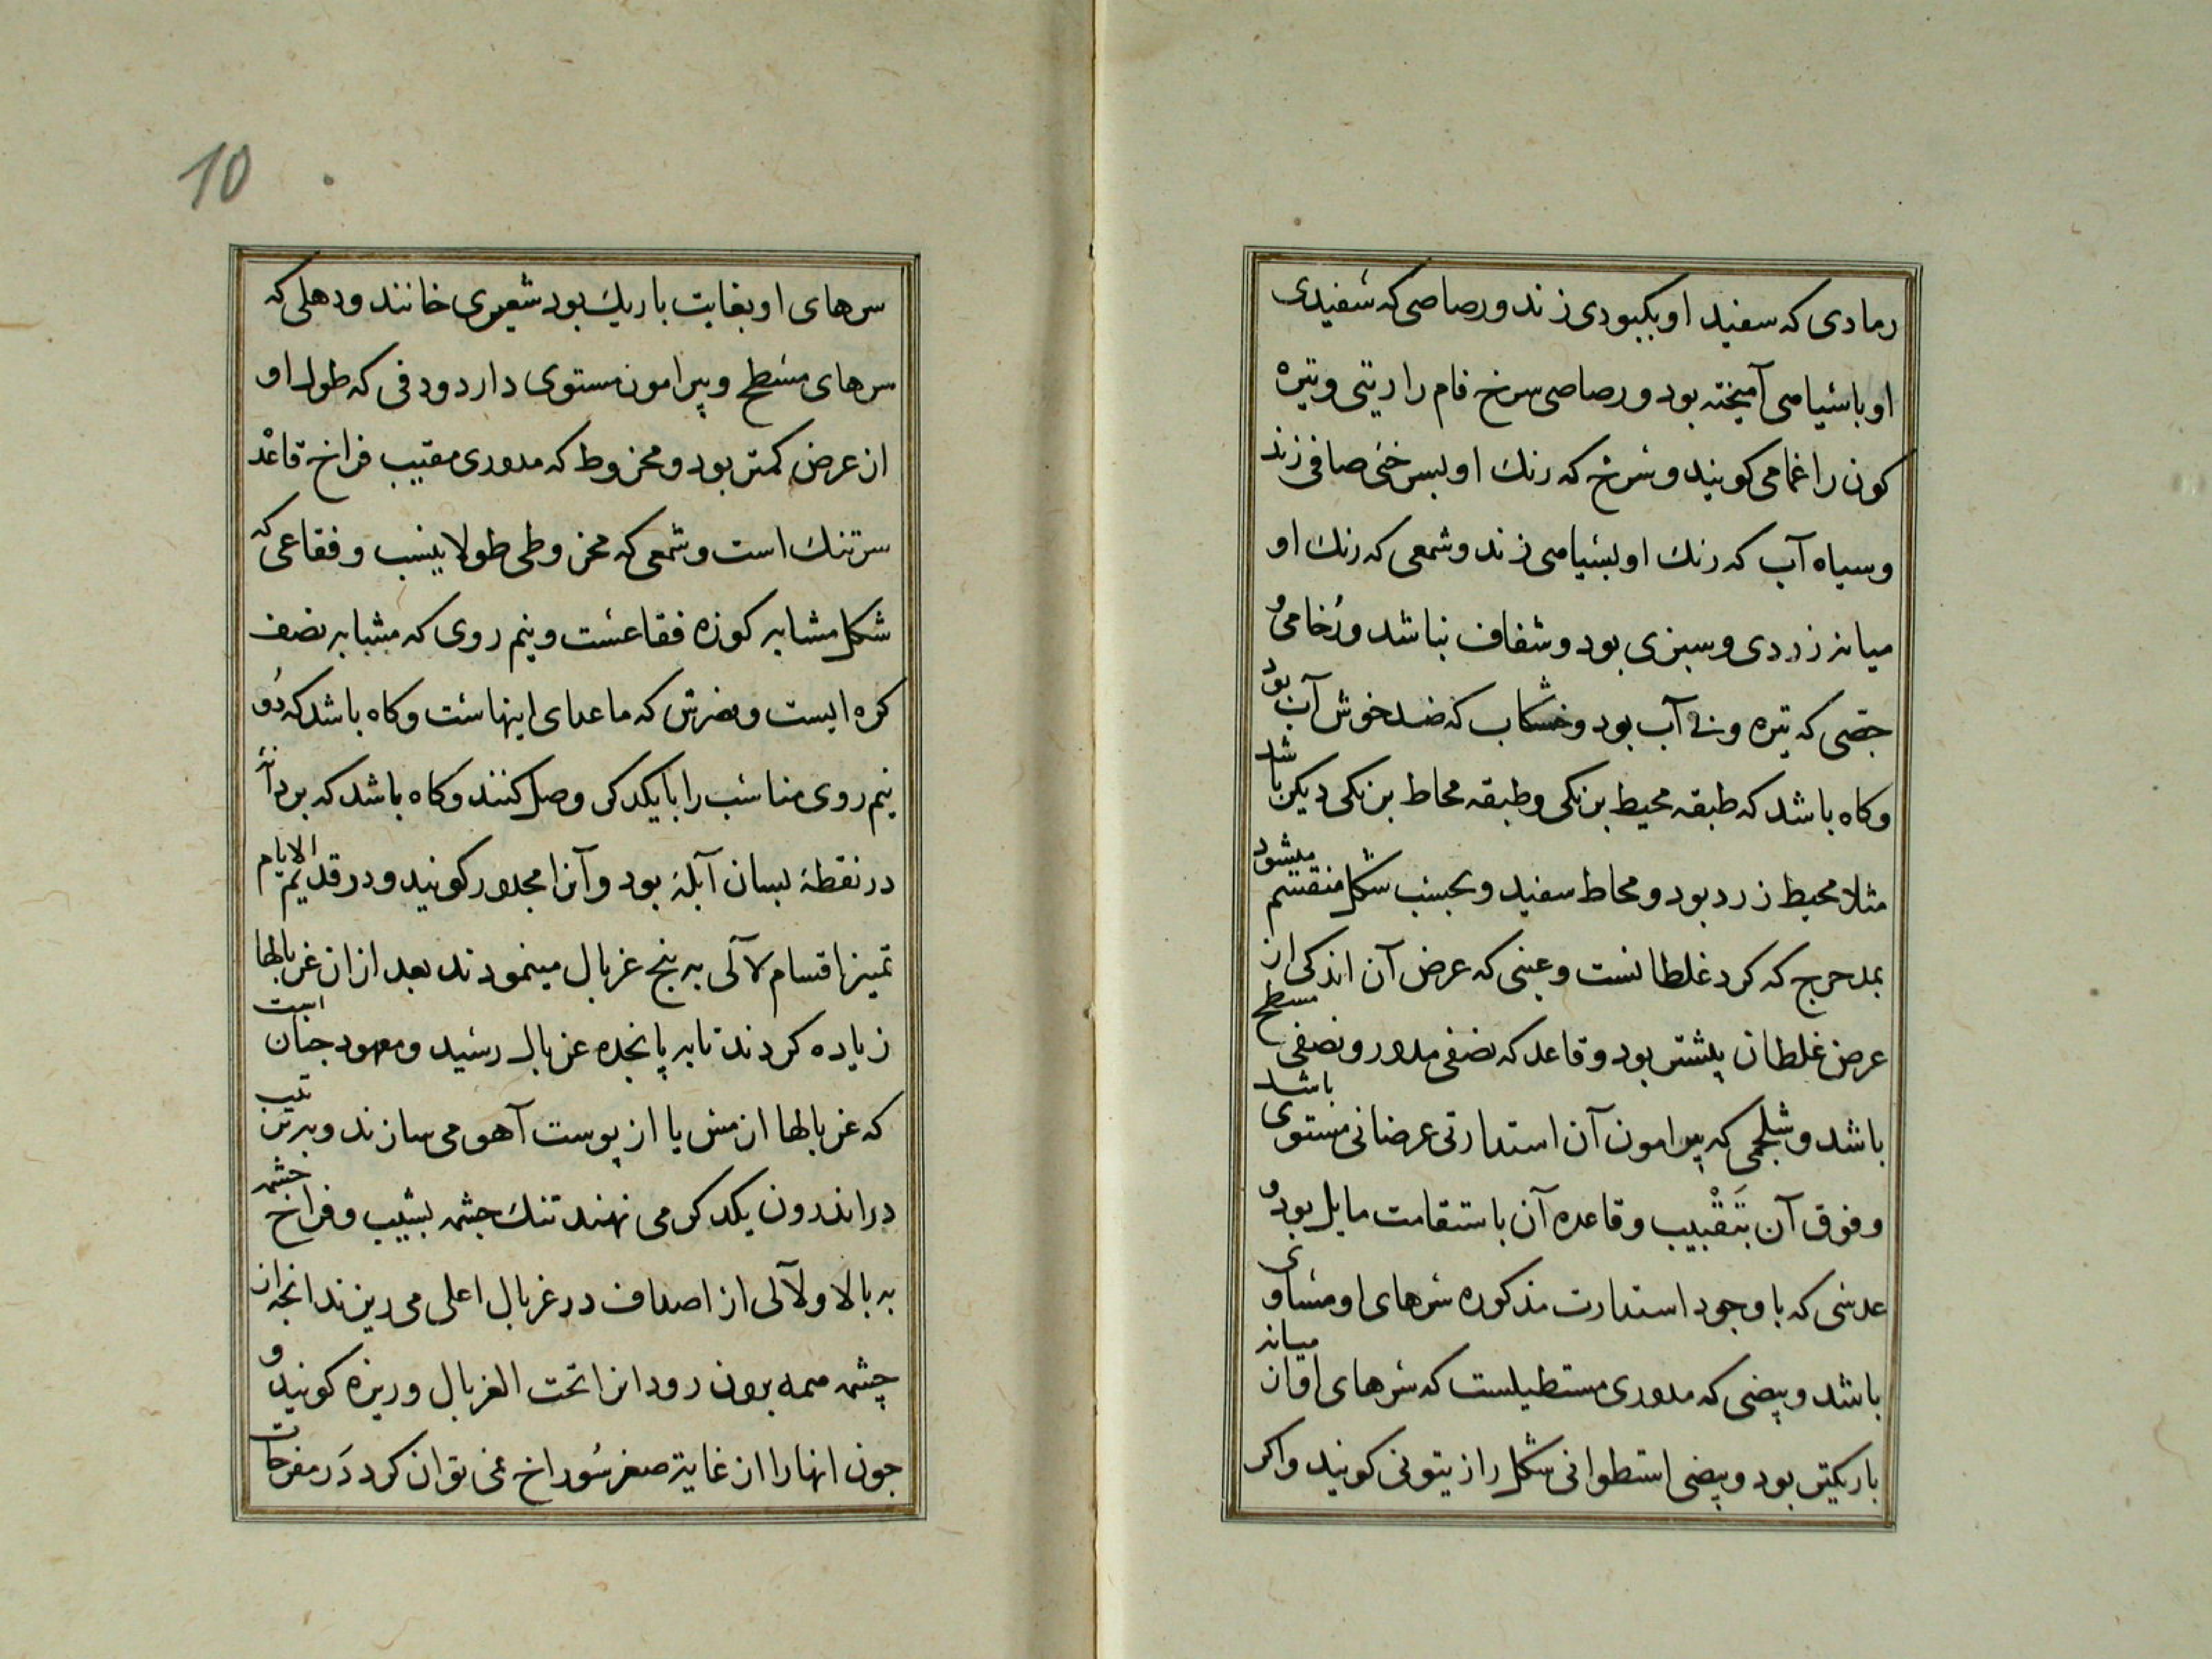 رمادی که سفید او بکبودی زند ورصاصی که سفیدی
او با سیاهی آمیخته بود ورصاصی سرخ فام را ریتی وتیره
کون را غمامی کویند وسرخ که رنک او بسرخی صافی زند
وسیاه آب که رنک او بسیاهی زند وشمعی که رنک او
میانه زردی وسبزی بود وشفاف نباشد ورُخامی و
جصی که تیره وبی آب بود وخشکاب که ضد خوش آب بود
وکاه باشد که طبقه محیط برنکی وطبقه محاط برنکی دیکر باشد
مثلا محیط زرد بود ومحاط سفید وبحسب شکل منقسم میشود
بمدحرج که کرد غلطانست وعینی که عرض آن اندکی از
عرض غلطان بیشتر بود وقاعد که نصفی مدور ونصفی مسطح
باشد وشلجمی که پیرامون آن استدارتی عرضانی مستوی باشد
وفوق آن بتَقْبیب وقاعده آن باستقامت مایل بود و
عدسی که با وجود استدارت مذکوره سرهای او مساوی
باشد وبیضی که مدوری مستطیلست که سرهای او از میانه
باریکتر بود وبیضی اسطوانی شکل را زیتونی کویند واکر
10
سرهای او بغایت باریك بود شعیری خانند ودهلی که
سرهای مسطح وپیرامون مستوی دارد ودفی که طول او
از عرض کمتر بود ومخروط که مدوری مقبب فراخ قاعد
سرتنك است وشمعی که مخروطی طولا بنسب وفقاعی که
شکل مشابه کوزه فقاعست ونیم روی که مشابه نصف
کره ایست ومضرس که ماعدای اینهاست وکاه باشد که دُو
نیم روی مناسب را با یکدکر وصل کنند وکاه باشد که بر دانه
در نقطهٔ بسان آبلهٔ بود وآنرا مجدور کویند ودر قدیم الایام
تمییز اقسام لآلی به پنج غربال مینمودند بعد ازان غربالها
زیاده کردند تا به پانجده غربال رسید ومعهود جنان است
که غربالها از مس یا از پوست آهو می سازند وبترتیب
در اندرون یکدکر می نهند تنك جشمه بشیب وفراخ جشمه
به بالا ولآلی از اصداف در غربال اعلی می ریزند انجه از
چشمه همه برون رود انرا تحت الغربال وریزه کویند و
جون انهارا از غایة صغر سُوراخ نمی توان کرد دَر مفرحات